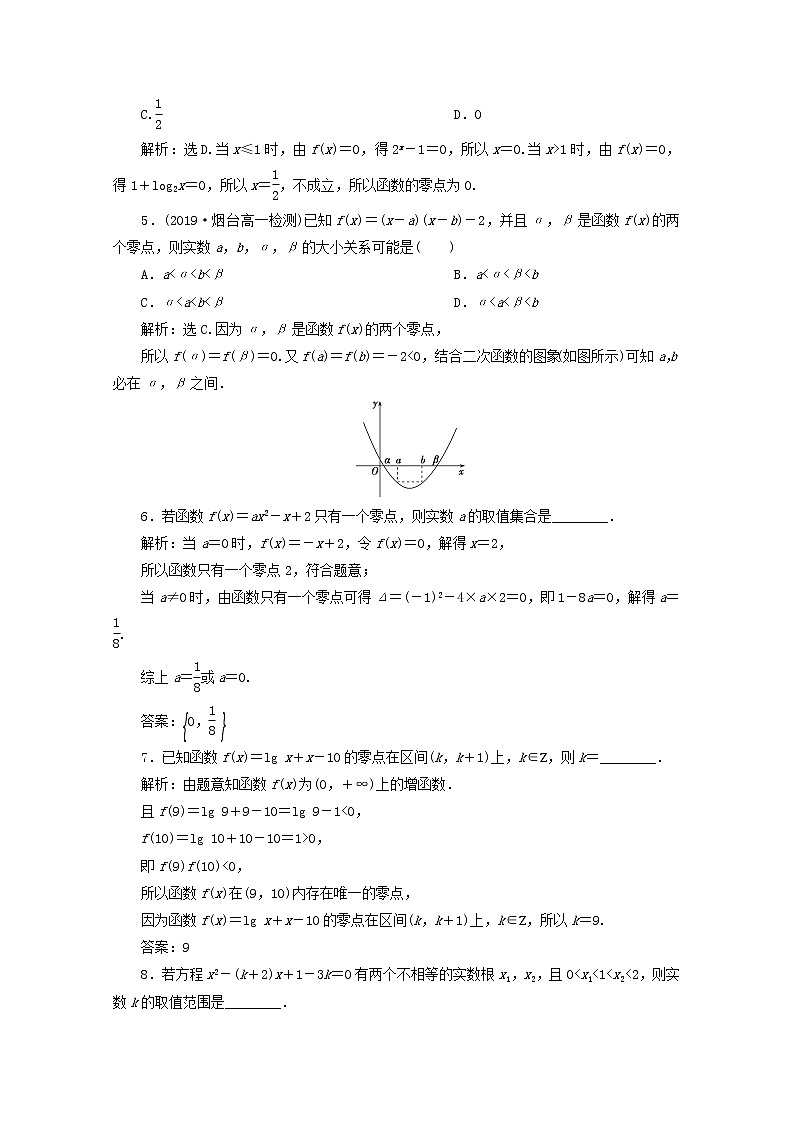 C.1/2 D.0
解析:选D.当x≤1时,由f(x)=0,得2ˣ-1=0,所以x=0.当x>1时,由f(x)=0,
得1+log₂x=0,所以x=1/2,不成立,所以函数的零点为0.
5.(2019·烟台高一检测)已知f(x)=(x-a)(x-b)-2,并且α,β是函数f(x)的两
个零点,则实数a,b,α,β的大小关系可能是( )
A.a<α<b<β B.a<α<β<b
C.α<a<b<β D.α<a<β<b
解析:选C.因为α,β是函数f(x)的两个零点,
所以f(α)=f(β)=0.又f(a)=f(b)=-2<0,结合二次函数的图象(如图所示)可知a,b
必在α,β之间.
y
O α a b β x
6.若函数f(x)=ax²-x+2只有一个零点,则实数a的取值集合是________.
解析:当a=0时,f(x)=-x+2,令f(x)=0,解得x=2,
所以函数只有一个零点2,符合题意;
当a≠0时,由函数只有一个零点可得Δ=(-1)²-4×a×2=0,即1-8a=0,解得a=
1/8.
综上a=1/8或a=0.
答案:{0,1/8}
7.已知函数f(x)=lg x+x-10的零点在区间(k,k+1)上,k∈Z,则k=________.
解析:由题意知函数f(x)为(0,+∞)上的增函数.
且f(9)=lg 9+9-10=lg 9-1<0,
f(10)=lg 10+10-10=1>0,
即f(9)f(10)<0,
所以函数f(x)在(9,10)内存在唯一的零点,
因为函数f(x)=lg x+x-10的零点在区间(k,k+1)上,k∈Z,所以k=9.
答案:9
8.若方程x²-(k+2)x+1-3k=0有两个不相等的实数根x₁,x₂,且0<x₁<1<x₂<2,则实
数k的取值范围是________.